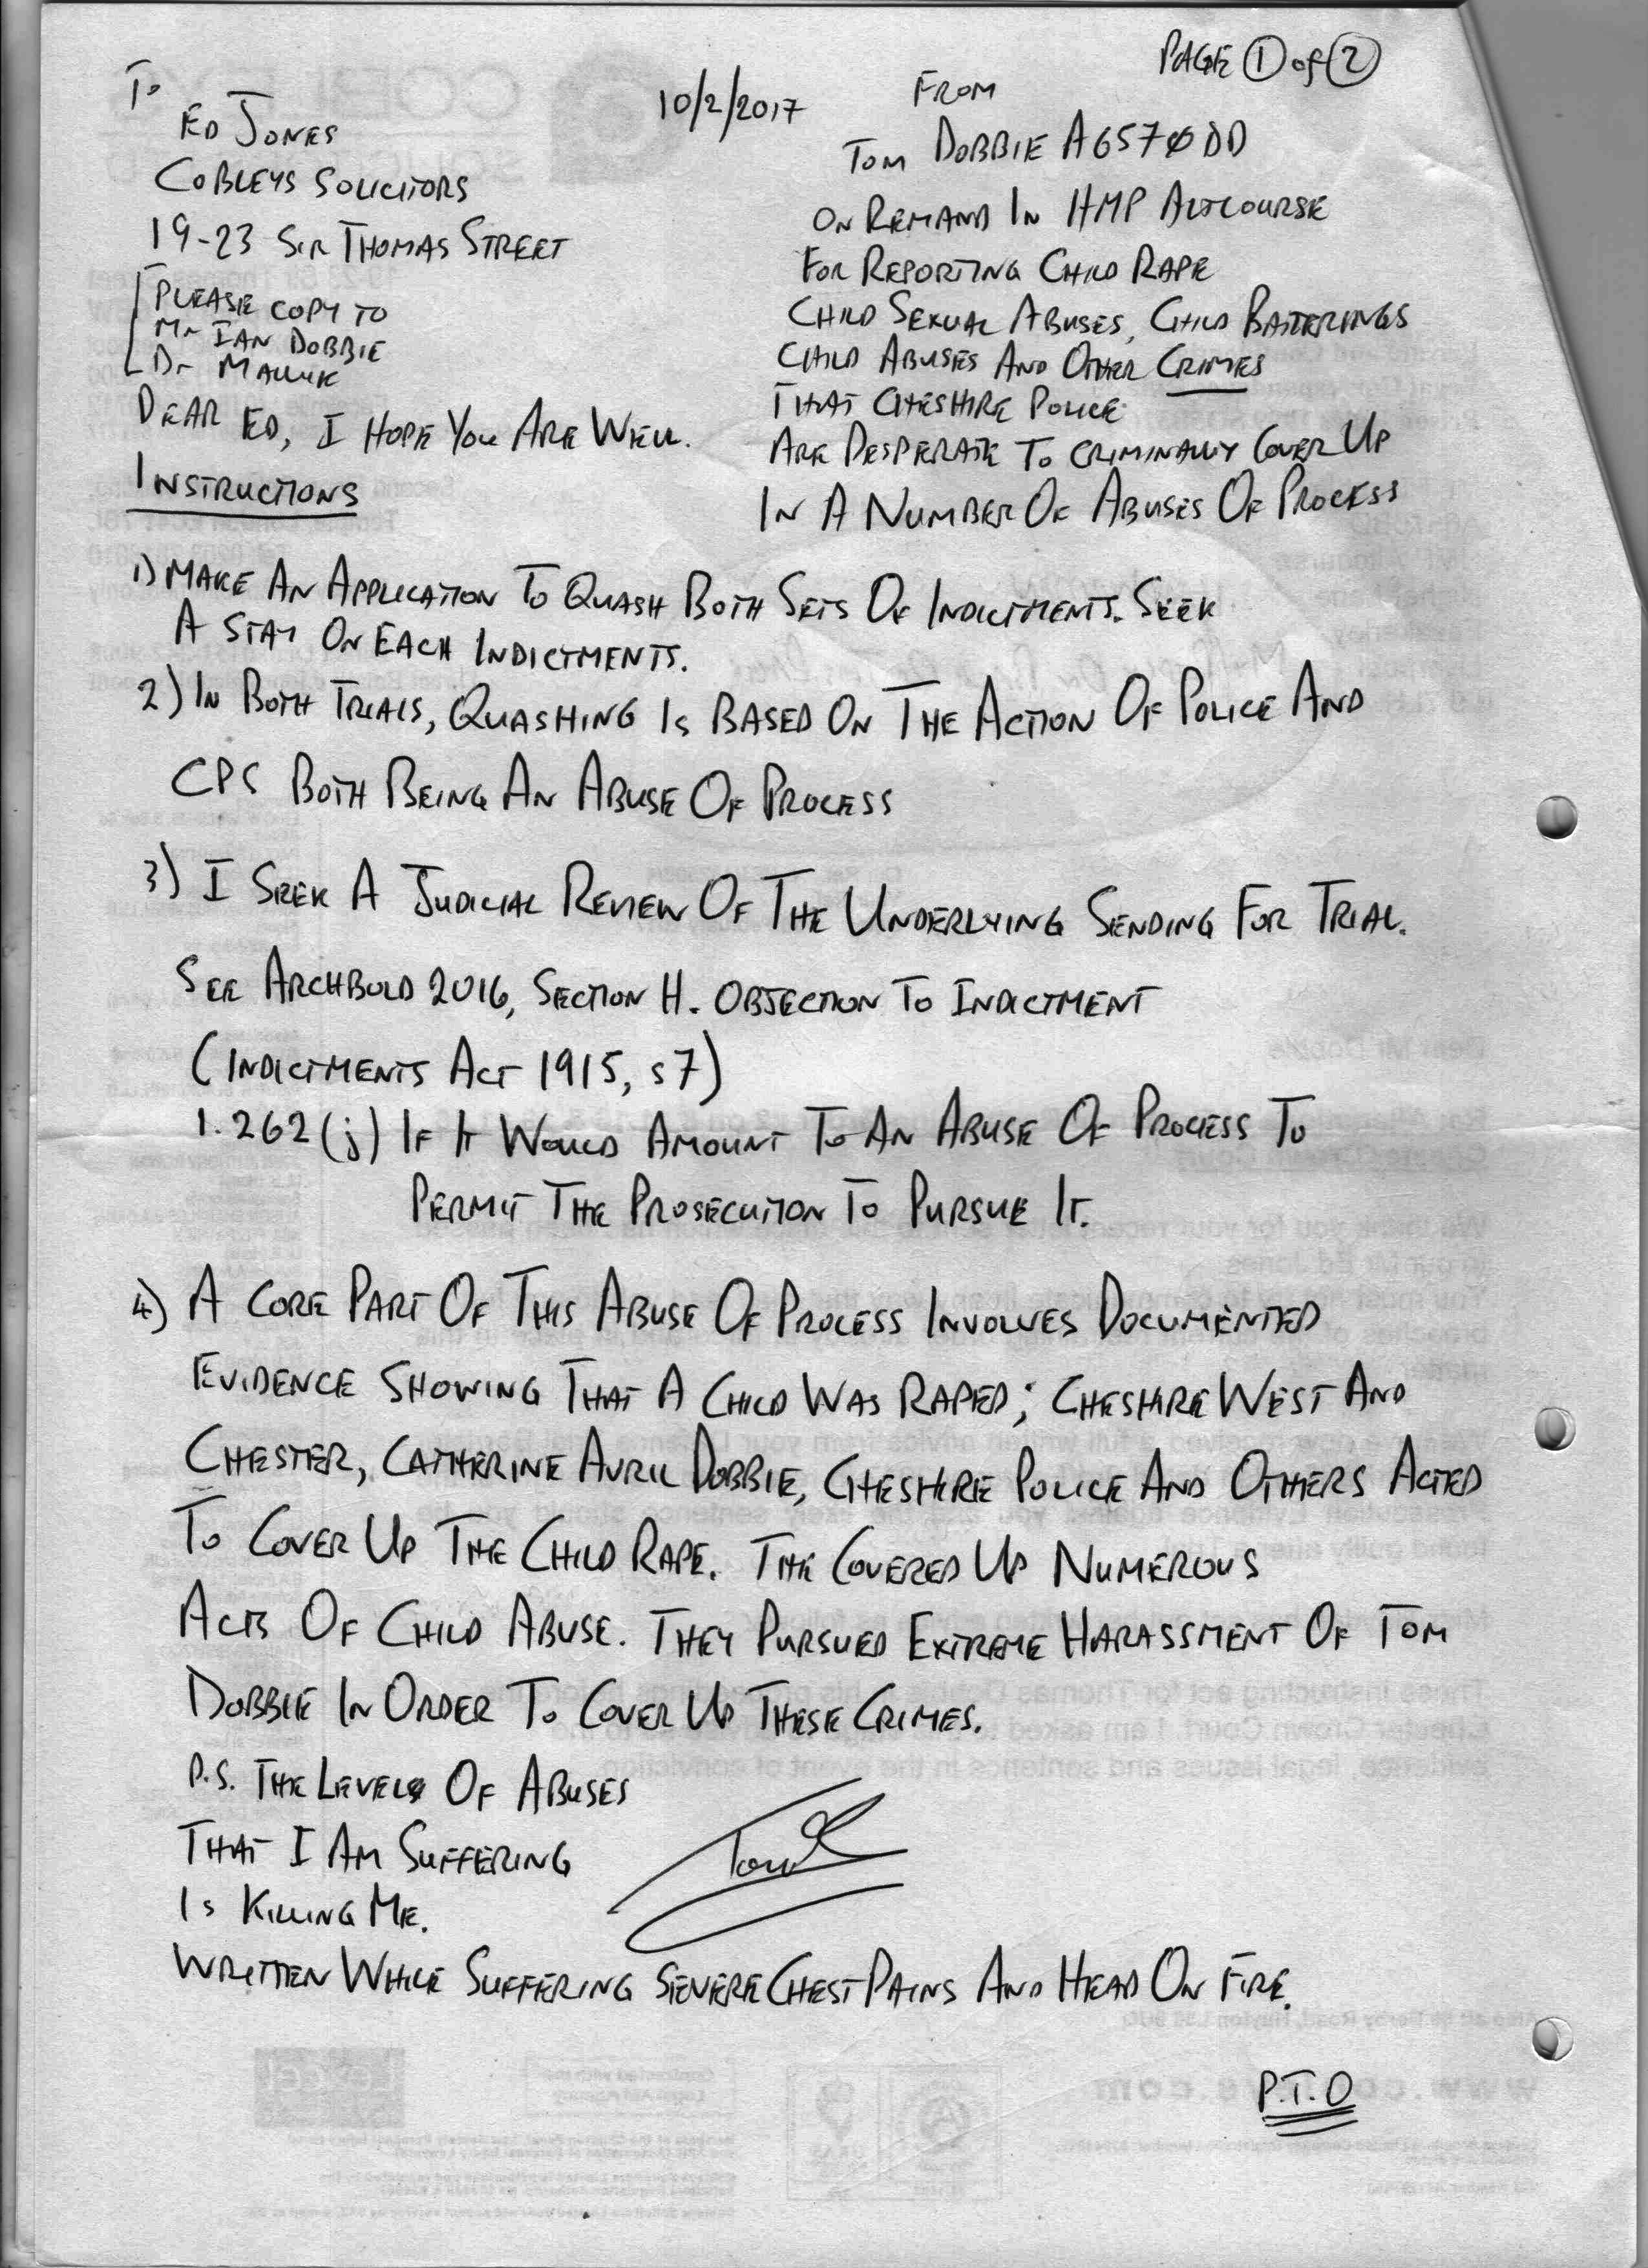 PAGE 1 of 2
To
ED JONES
COBLEYS SOLICITORS
19-23 SIR THOMAS STREET
PLEASE COPY TO
Mr IAN DOBBIE
Dr MALLIK
10/2/2017
FROM
TOM DOBBIE A6570DD
ON REMAND IN HMP ALTCOURSE
FOR REPORTING CHILD RAPE
CHILD SEXUAL ABUSES, CHILD BATTERINGS
CHILD ABUSES AND OTHER CRIMES
THAT CHESHIRE POLICE
ARE DESPERATE TO CRIMINALLY COVER UP
IN A NUMBER OF ABUSES OF PROCESS
DEAR ED, I HOPE YOU ARE WELL.
INSTRUCTIONS
1) MAKE AN APPLICATION TO QUASH BOTH SETS OF INDICTMENTS. SEEK
A STAY ON EACH INDICTMENTS.
2) IN BOTH TRIALS, QUASHING IS BASED ON THE ACTION OF POLICE AND
CPS BOTH BEING AN ABUSE OF PROCESS
3) I SEEK A JUDICIAL REVIEW OF THE UNDERLYING SENDING FOR TRIAL.
SEE ARCHBOLD 2016, SECTION H. OBJECTION TO INDICTMENT
(INDICTMENTS ACT 1915, s7)
1.262(j) IF IT WOULD AMOUNT TO AN ABUSE OF PROCESS TO
PERMIT THE PROSECUTION TO PURSUE IT.
4) A CORE PART OF THIS ABUSE OF PROCESS INVOLVES DOCUMENTED
EVIDENCE SHOWING THAT A CHILD WAS RAPED; CHESHIRE WEST AND
CHESTER, CATHERINE AVRIL DOBBIE, CHESHIRE POLICE AND OTHERS ACTED
TO COVER UP THE CHILD RAPE. THE COVERED UP NUMEROUS
ACTS OF CHILD ABUSE. THEY PURSUED EXTREME HARASSMENT OF TOM
DOBBIE IN ORDER TO COVER UP THESE CRIMES.
P.S. THE LEVELS OF ABUSES
THAT I AM SUFFERING
IS KILLING ME.
WRITTEN WHILE SUFFERING SEVERE CHEST PAINS AND HEAD ON FIRE.
P.T.O